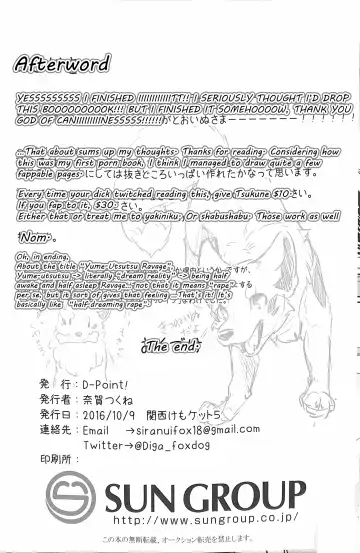 Afterword
YESSSSSSSSS I FINISHED IIIIIIIIIIITT!! I SERIOUSLY THOUGHT I'D DROP
THIS BOOOOOOOOOK!!! BUT I FINISHED IT SOMEHOOOOW, THANK YOU
GOD OF CANIIIIIIIIINESSSSSS!!!!!!がとおいぬさまーーーーーーー！！！！！！
...That about sums up my thoughts. Thanks for reading. Considering how
this was my first porn book, I think I managed to draw quite a few
fappable pages にしては抜きどころいっぱい作れたかなって思います。
Every time your dick twitched reading this, give Tsukune $10 さい。
If you fap to it, $30 さい。
Either that or treat me to yakiniku. Or shabushabu. Those work as well
Nom.
Oh, in ending,
About the title "Yume-Utsutsu Ravage"
Yume-utsutsu -> literally "dream reality" -> being half
awake and half asleep Ravage... not that it means "rape"
per se, but it sort of gives that feeling ...That's it! It's
basically like "half-dreaming rape".
The end;
発　行：D-Point!
発行者：奈賀つくね
発行日：2016/10/9　関西けもケット5
連絡先：Email　→siranuifox18@gmail.com
Twitter→@Diga_foxdog
印刷所：
SUN GROUP
http://www.sungroup.co.jp/
この本の無断転載、オークション転売を禁止します。